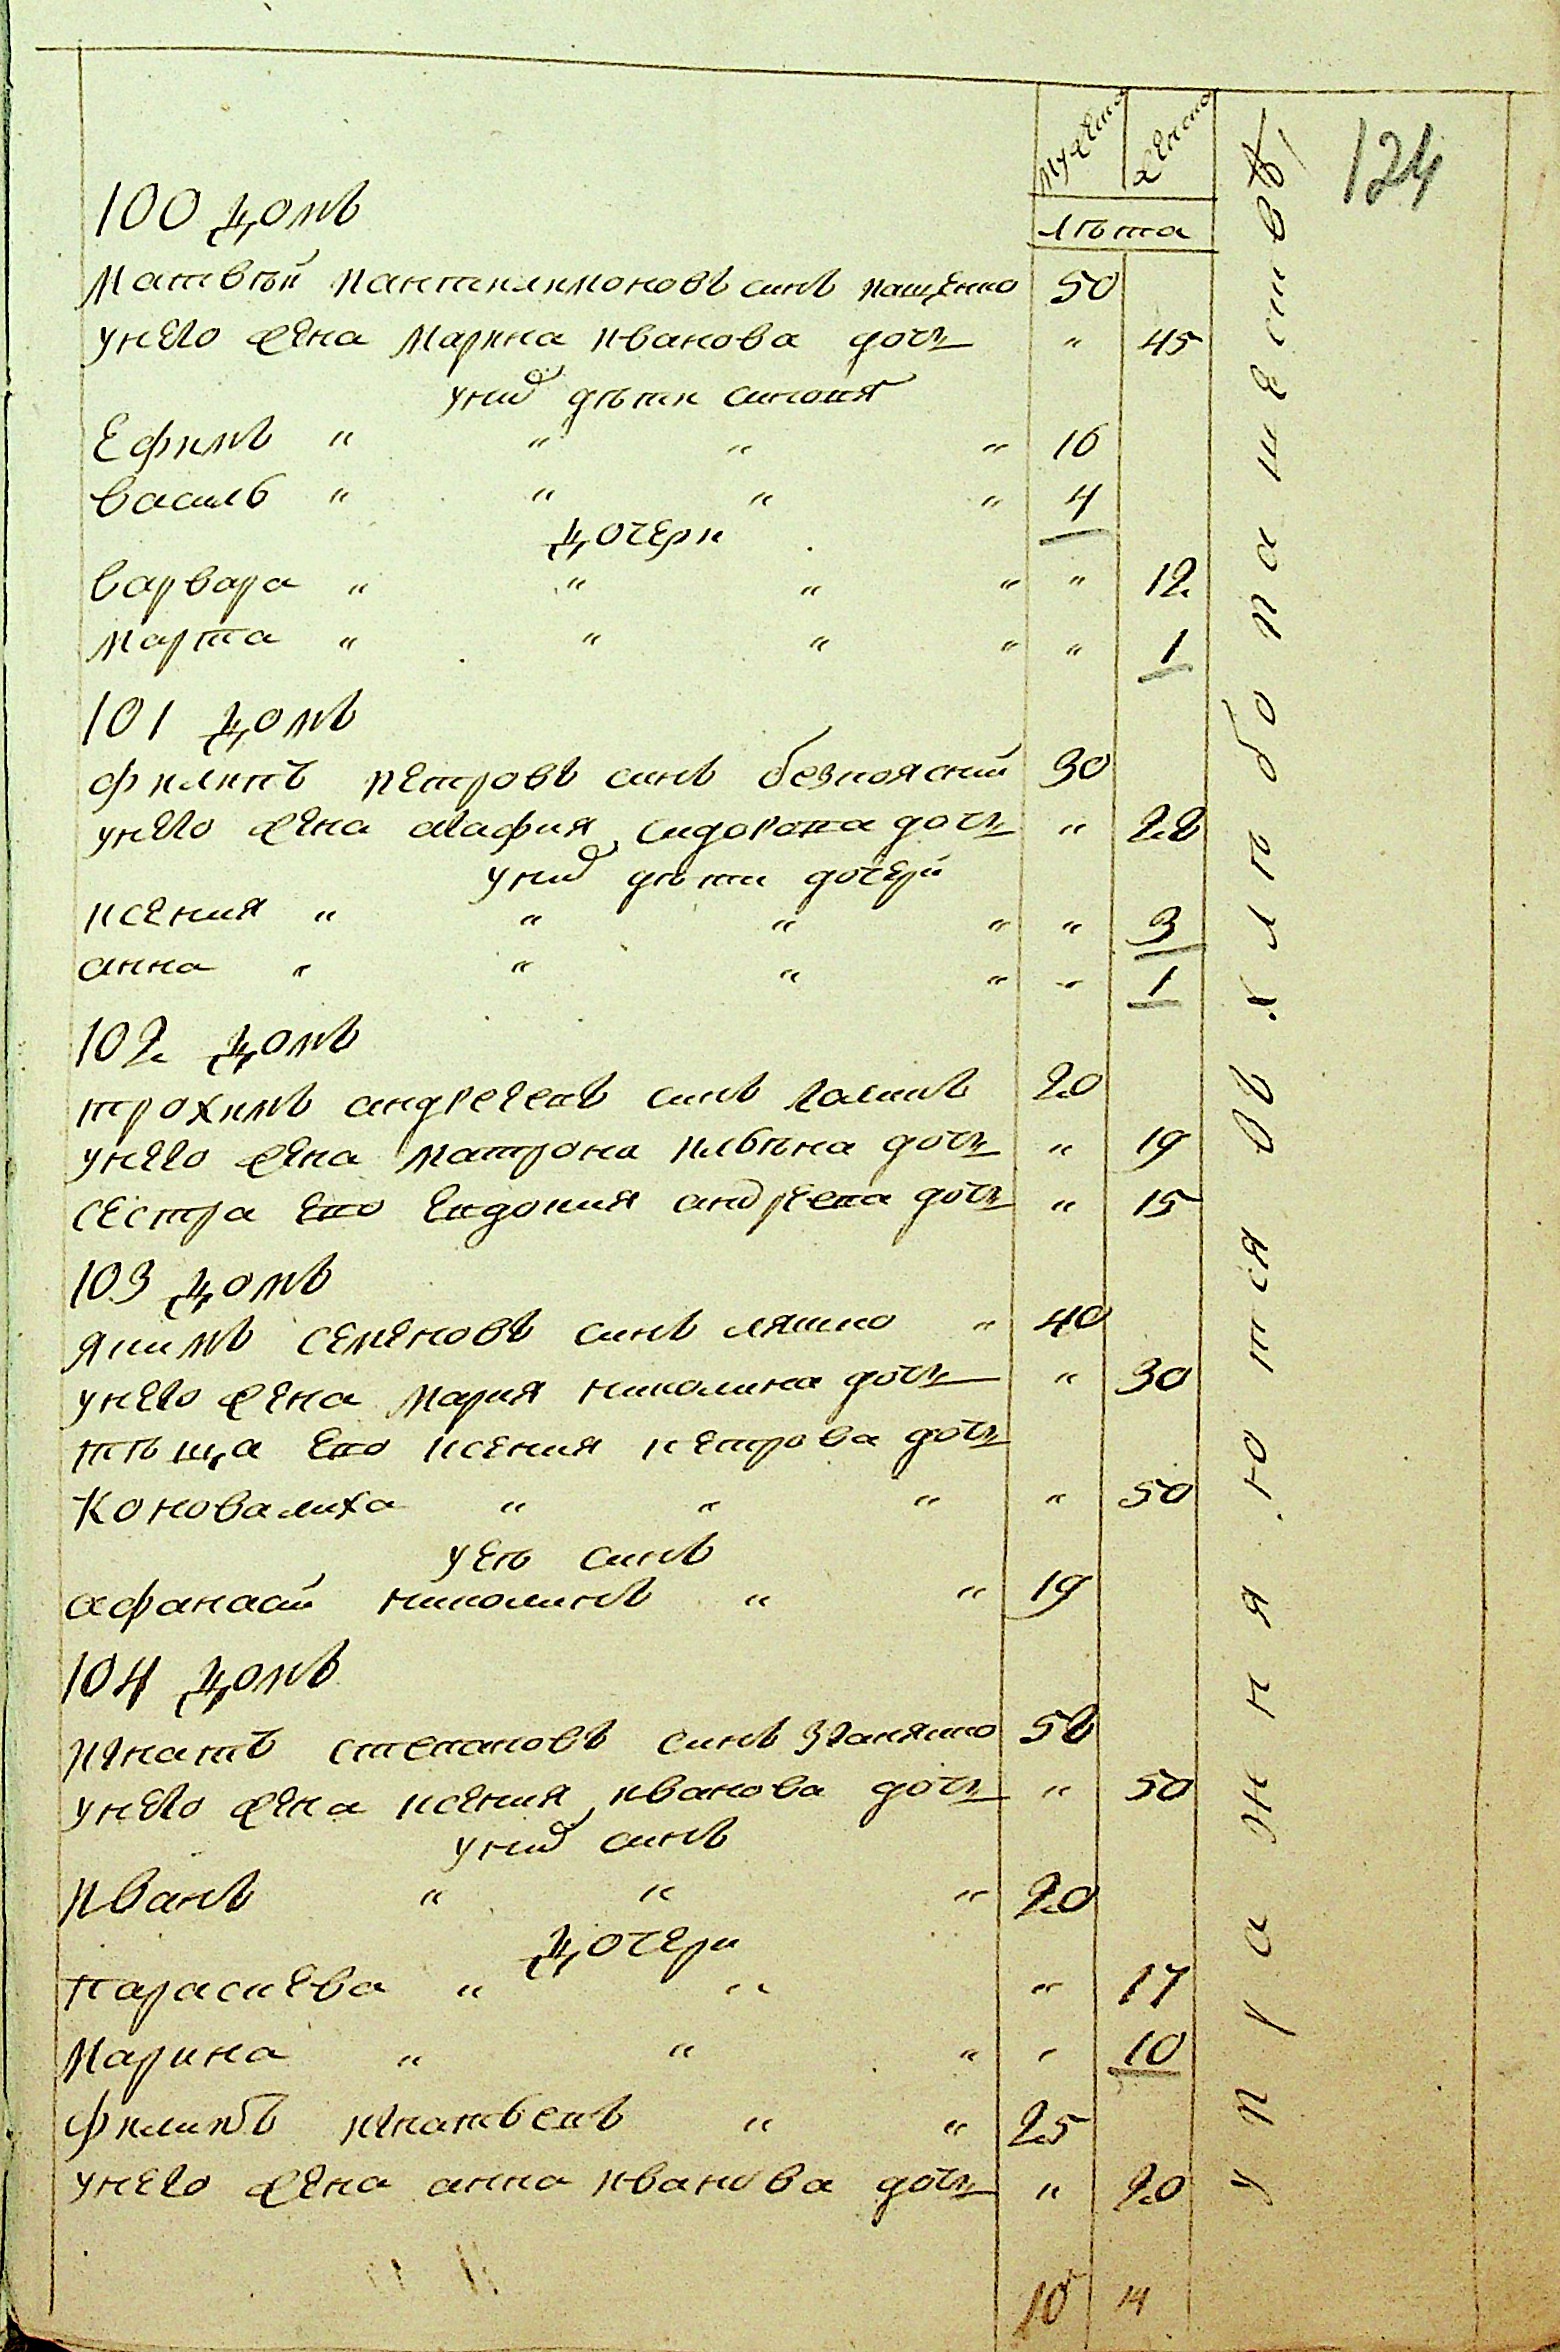 124
Мужеска Женска
лѣта
100 домъ
Матвѣй пантилимоновъ синъ пащенко 50
унего жена Марина иванова дочь " 45
унихъ дѣти синовя
Ефимъ " " " " 16
Василь " " " " 4
Дочери
Варвара " " " " " 12
Марта " " " " " 1
101 домъ
Филипъ петровъ синъ безпояский 30
унего жена агафия сидорова дочь " 22
унихъ дѣти дочери
ксения " " " " " 3
анна " " " " " 1
102 домъ
трохимъ андреевъ синъ 20
унего жена матрона илвѣна дочь " 19
сестра его евдокия андреева дочь " 15
103 домъ
якимъ семеновъ синъ ляшко " 40
унего жена Мария николина дочь " 30
тѣща его ксения петрова дочь
коновалиха " " " " 50
уеѣ синъ
афанасій николинъ " " 19
104 домъ
игнатъ степановъ синъ 52
унего жена ксения иванова дочь " 50
унихъ синъ
иванъ " " " 20
Дочери
параскева " " " 17
Марина " " " " 10
Филипъ игнатьевъ " " 25
унего жена анна иванова дочь " 20
10 14
упражняются въ хлѣбопашествѣ